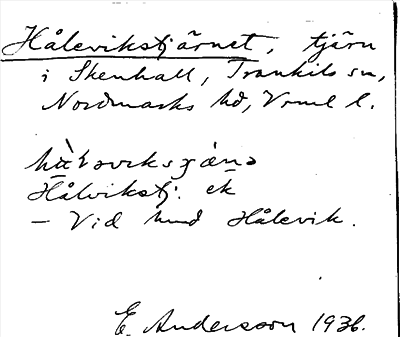 Hålevikstjärnet, tjärn
i Skenhall, Trankils sn,
Nordmarks hd, Vrml l.
Hålvikstj. ek
— Vid hmd Hålevik.
E. Andersson 1936.